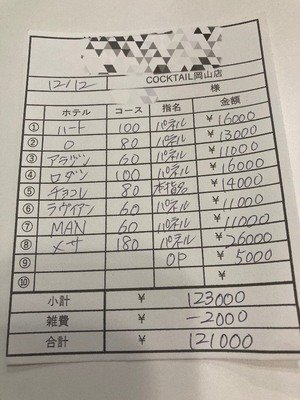 COCKTAIL岡山店
12/12 様
ホテル コース 指名 金額
① ハート 100 パネル ¥16000
② O 80 パネル ¥13000
③ アラジン 60 パネル ¥11000
④ ロダン 100 パネル ¥16000
⑤ チョコレ 80 本指名 ¥14000
⑥ ラヴィアン 60 パネル ¥11000
⑦ MAN 60 パネル ¥11000
⑧ メサ 180 パネル ¥26000
⑨ OP ¥5000
⑩ ¥
小計 ¥ 123000
雑費 ¥ -2000
合計 ¥ 121000